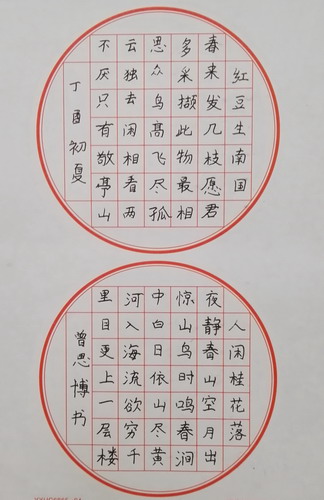 红豆生南国
春来发几枝愿君
多采撷此物最相
思众鸟高飞尽孤
云独去闲相看两
不厌只有敬亭山
丁酉初夏
人闲桂花落
夜静春山空月出
惊山鸟时鸣春涧
中白日依山尽黄
河入海流欲穷千
里目更上一层楼
曾思博书